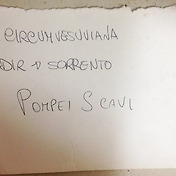 CIRCUMVESUVIANA
DIR N SORRENTO
POMPEI SCAVI